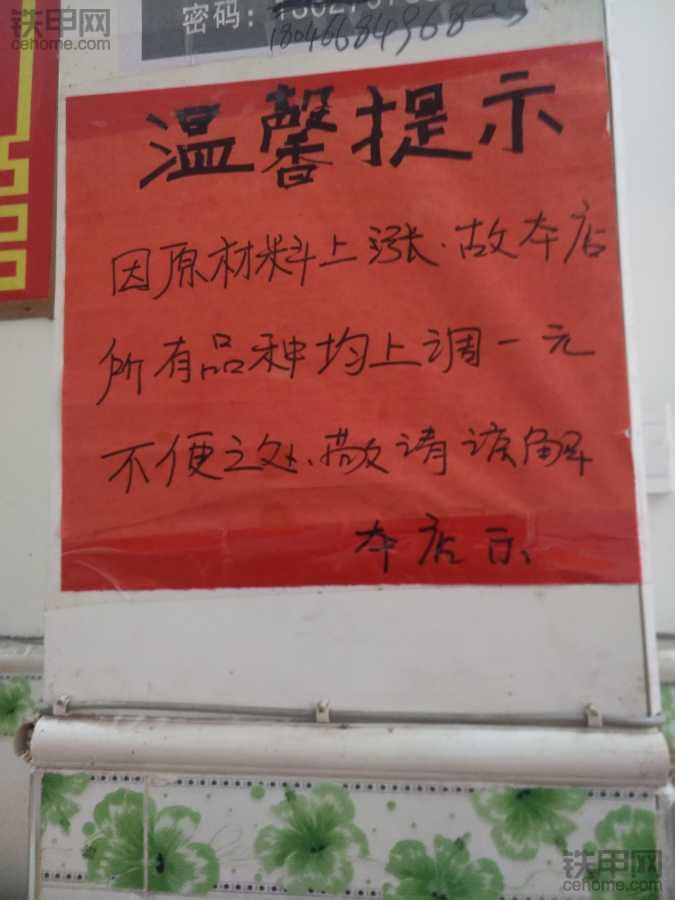 铁甲网
cehome.com
密码:
18046684968
温馨提示
因原材料上涨.故本店
所有品种均上调一元
不便之处、敬请谅解
本店示
铁甲网
cehome.com